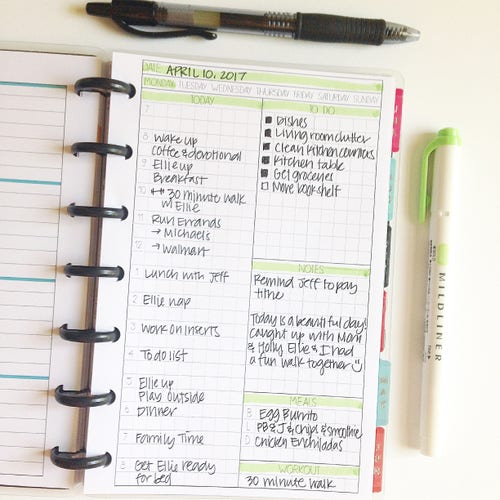 DATE: APRIL 10, 2017
MONDAY TUESDAY WEDNESDAY THURSDAY FRIDAY SATURDAY SUNDAY
TODAY
7
8 Wake up
Coffee & devotional
9 Ellie up
Breakfast
10 30 minute walk
w/ Ellie
11 Run Errands
→ Michaels
12 → Walmart
1 Lunch with Jeff
2 Ellie nap
3 Work on inserts
4 To do list
5 Ellie up
Play outside
6 Dinner
7 Family Time
8 Get Ellie ready
for bed
TO DO
Dishes
Living room clutter
Clean kitchen counters
Kitchen table
Get groceries
Move bookshelf
NOTES
Remind Jeff to pay
tithe
Today is a beautiful day!
Caught up with Mom
& Holly. Ellie & I had
a fun walk together
MEALS
B Egg Burrito
L PB & J & chips & smoothie
D Chicken Enchiladas
WORKOUT
30 minute walk
MILDLINER